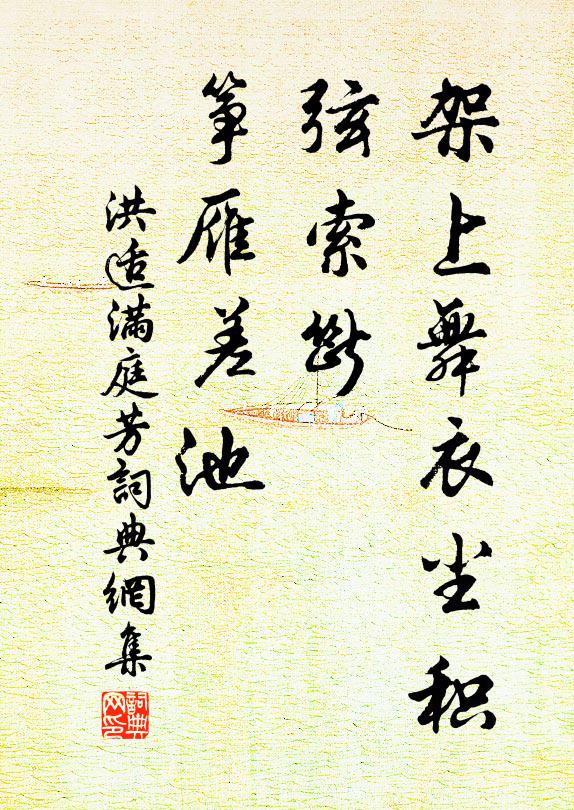 架上舞衣尘积
弦索断
筝雁差池
洪适满庭芳詞典網集
詞典
网印